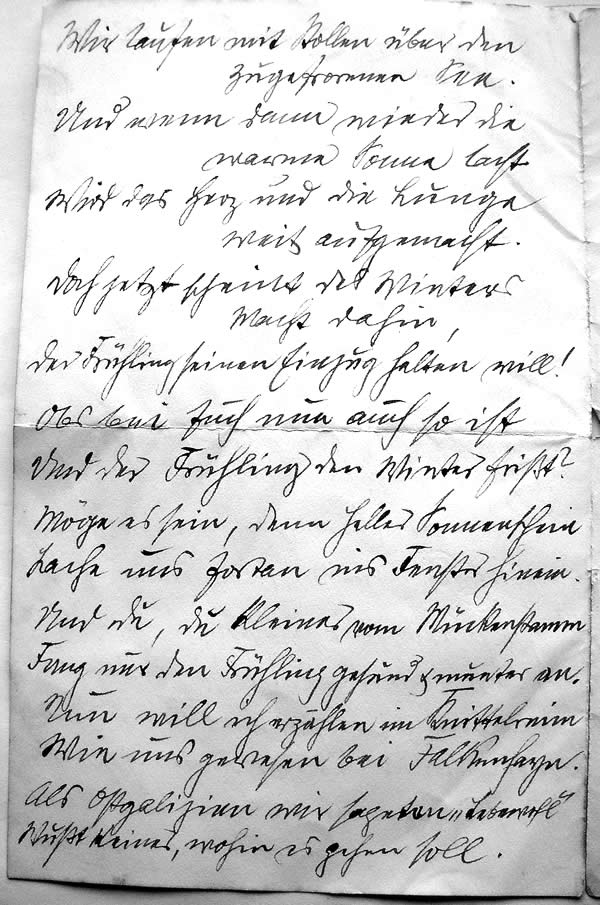 Wir laufen mit Rollen über den
zugefrorenen See.
Und wenn dann wieder die
warme Sonne lacht
Wird das Herz und die Lunge
weit aufgemacht.
Doch jetzt scheint des Winters
Macht dahin,
Der Frühling seinen Einzug halten will!
Obs bei Euch nun auch so ist
Und der Frühling den Winter frißt?
Möge es sein, denn heller Sonnenschein
Lache uns fortan ins Fenster hinein.
Und du, du kleines vom Muckenstamm
Fang nur den Frühling gesund & munter an.
Nun will ich erzählen im Knittelreim
Wie uns gewesen bei Falkenhayn.
Als Ostgalizien wir sagten „Lebewohl"
Wußt keiner, wohin es gehen soll.